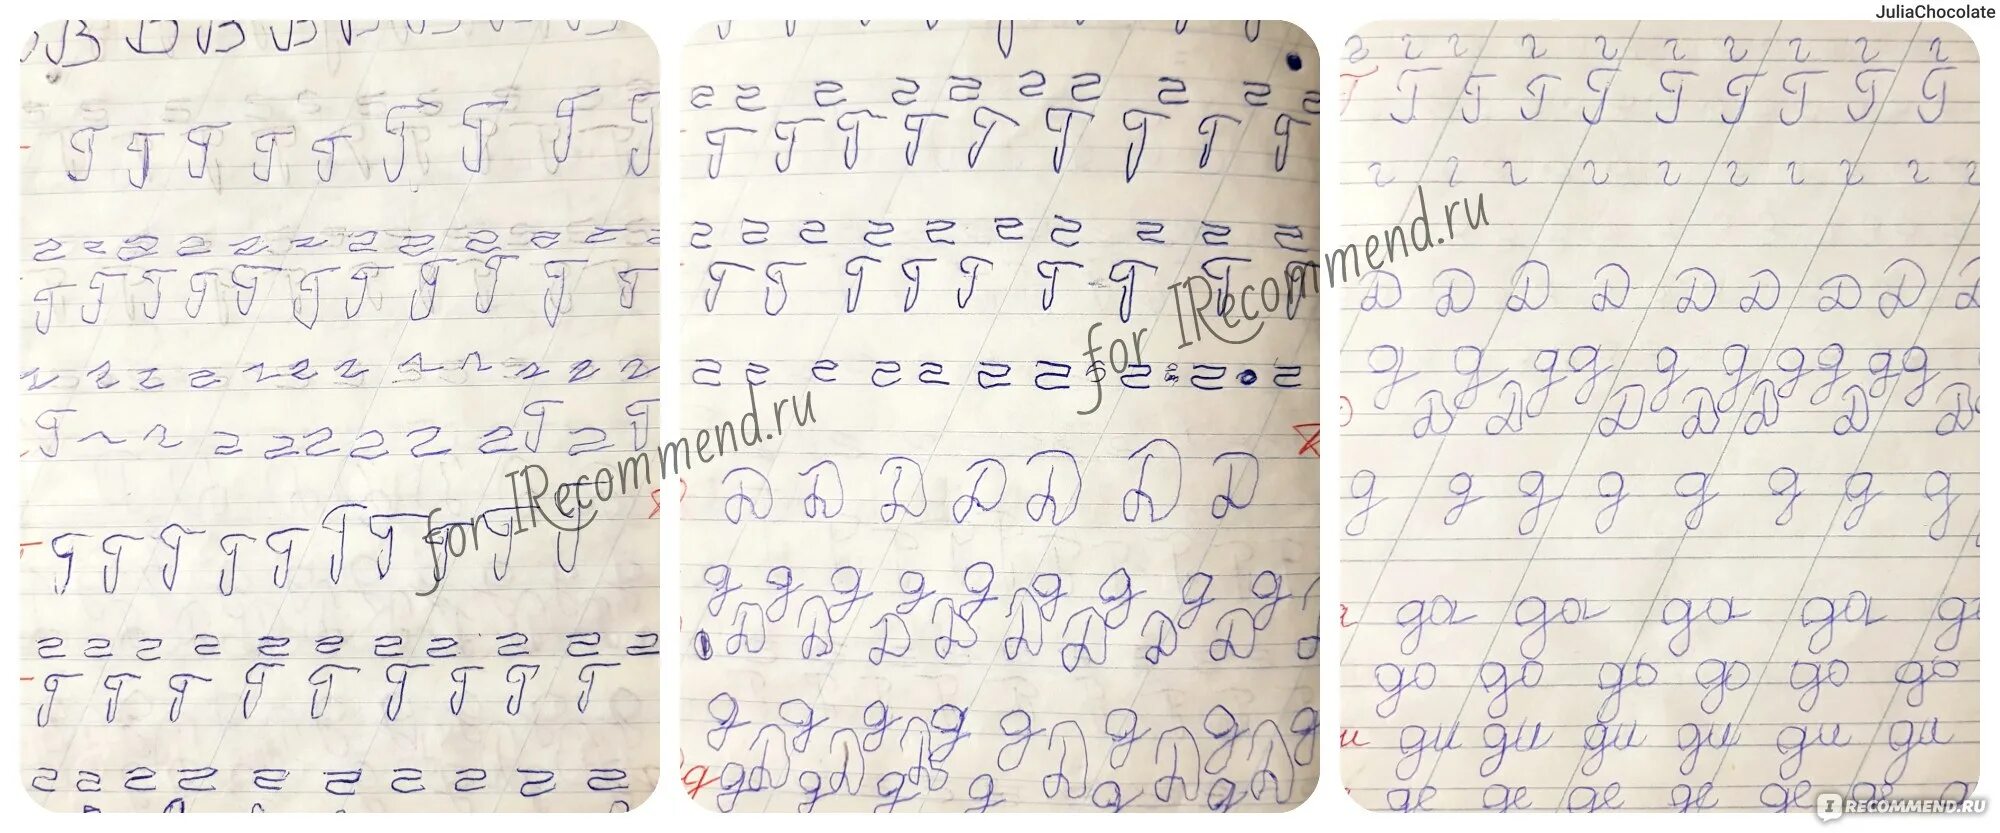 JuliaChocolate
В В В В
Г Г Г Г Г Г Г Г Г
г г г г г г г г г г г
Г Г Г Г Г Г Г Г Г Г
г г г г г г г г г г г
Г г г г г г г г г Г г Г
Г Г Г Г Г Г Г Г Г Г
г г г г г г г г г г г
Г Г Г Г Г Г Г Г Г
г г г г г г г г г г
for IRecommend.ru
г г г г г г г г г г
Г Г Г Г Г Г Г Г Г
г г г г г г г г г г
Г Г Г Г Г Г Г Г Г
г г г г г г г г г г
Д Д Д Д Д Д Д
д д д д д д д д д
Д Д Д Д Д Д Д Д
д д д д д д д д
д Д д Д д Д д Д д Д
for IRecommend.ru
г г г г г г г г г г
Г Г Г Г Г Г Г Г Г Г
г г г г г г г г г г
Д Д Д Д Д Д Д Д Д
д д д д д д д д д д
Д Д Д Д Д Д Д
д д д д д д д д
да да да да
до до до до до до
ди ди ди ди ди ди
де де де де де де
IRECOMMEND.RU